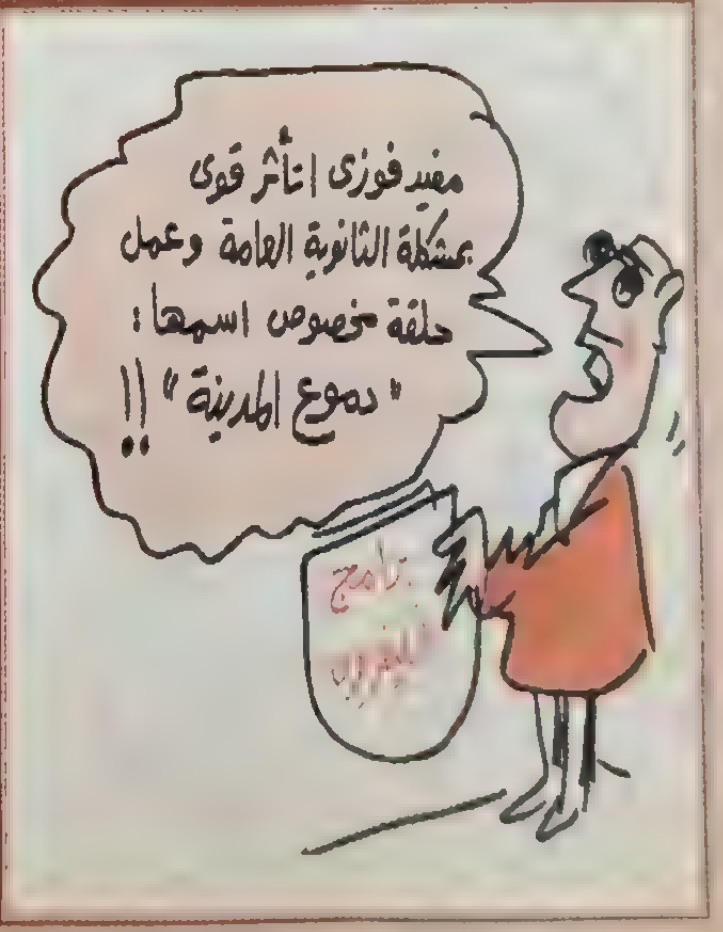 مفيد فوزى اتأثر قوى
بمشكلة الثانوية العامة وعمل
حلقة مخصوص اسمها :
" دموع المدينة " !!
برامج